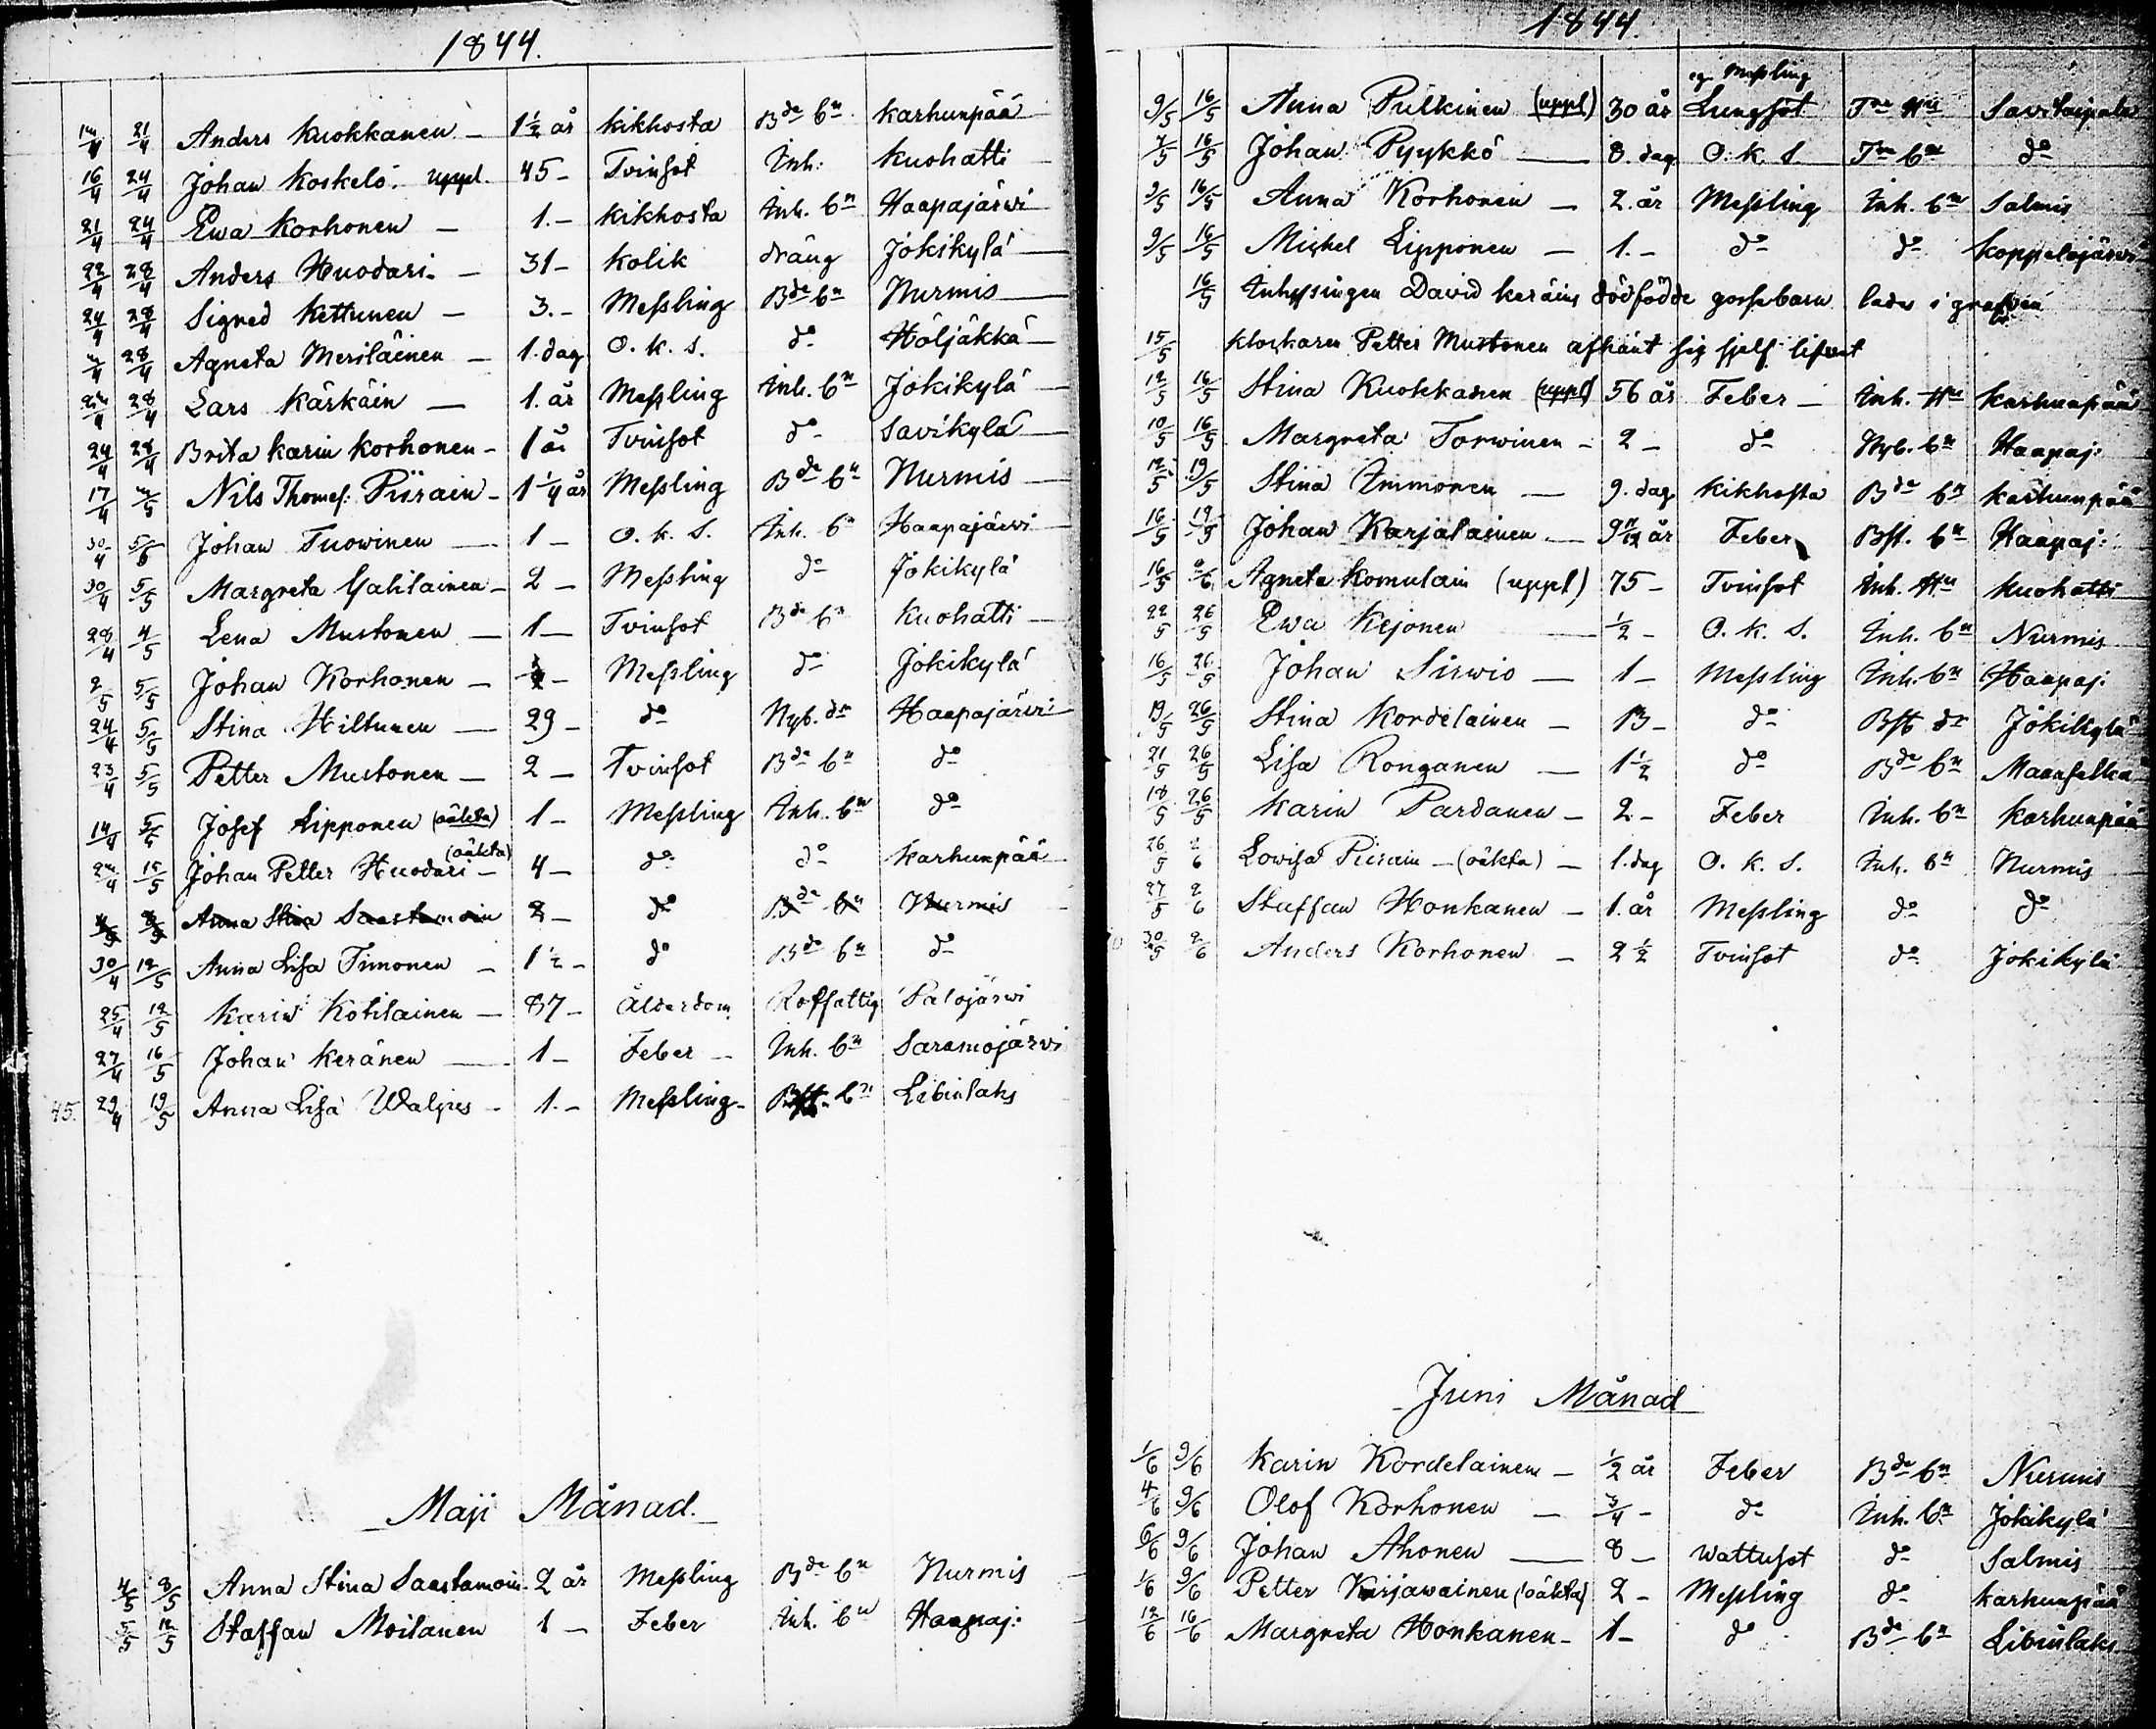 1844.
14/4 21/4 Anders Kuokkanen – 1½ år kikhosta Bde bn. Karhunpää
16/4 24/4 Johan Koskelo. uppl. 45 – Tvinsot Inh: Kuohatti
21/4 24/4 Ewa Korhonen – 1. – kikhosta Inh. bn Haapajärwi
22/4 28/4 Anders Huodari. – 31 – Kolik dräng Jokikylä
24/4 28/4 Signed Kettunen – 3. – Messling Bde bn Nurmis
28/4 Agneta Meriläinen – 1. dag O. k. s. do Höljäkkä
28/4 Lars Kärkäin – 1. år Messling Inh. bn Jokikylä
24/4 28/4 Brita Karin Korhonen – 1 år Tvinsot do Savikylä
17/4 Nils Thomes: Piirain – 1¼ år Messling Bde bn Nurmis
30/4 5/6 Johan Tuowinen – 1 – O. k. S. Inh. bn Haapajärwi
30/4 5/5 Margreta Gahlainen – 2 – Messling do Jokikylä
28/4 4/5 Lena Mustonen – 1 – Tvinsot Bde bn Kuohatti
2/5 5/5 Johan Korhonen – Messling do Jokikylä
24/4 5/5 Stina Hiltunen – 29 – do Nyb. dr Haapajärvi
23/4 5/5 Petter Mustonen – 2 – Tvinsot Bde bn do
14/4 5/5 Josef Lipponen (oäkta) 1 – Messling Inh. bn do
15/5 Johan Petter Huodari (oäkta) – 4 – do do Karhunpää
4/5 8/5 Anna Stina Saastamoin 2 – do Bde bn Nurmis
30/4 12/5 Anna Lisa Timonen – 1½ – do Bde bn do
25/4 12/5 Karin Kotilainen – 87 – Ålderdom Rotfattig Palojärwi
27/4 16/5 Johan Keränen – 1 – Feber – Inh. bn Saramojärvi
45. 29/4 19/5 Anna Lisa Waljus – 1. – Messling – Bst. bn Libinlaks
Maji Månad.
4/5 8/5 Anna Stina Saastamoin. 2 år Messling Bde bn Nurmis
5/5 12/5 Staffan Moilanen 1 – Feber Inh. bn Haapaj:
1844.
eg. Messling
9/5 16/5 Anna Pulkinen (uppl) 30 år Lungsot Tre Hu Savikaipale
7/5 16/5 Johan Pyykkö – 8. dag O. k. S. Tre bn do
9/5 16/5 Anna Korhonen – 2. år Messling Inh. bn Salmis
9/5 16/5 Michel Lipponen – 1. – do do Koppelojärwi
16/5 Inhysingen David Keräins dödfödde gossebarn lades i grafven
15/5 Klockaren Petter Mustonen afhänt sig sjelf lifvet
12/5 16/5 Stina Kuokkanen (uppl) 56 år Feber – Inh. Hu Karhunpää
10/5 16/5 Margreta Torwinen – 2 – do Nyb. bn Haapaj:
12/5 19/5 Stina Immonen – 9. dag Kikhosta Bde bn Karhunpää
16/5 19/5 Johan Karjalainen – år Feber Bst. bn Haapaj:
16/5 2/6 Agneta Komulain (uppl) 75 – Tvinsot Inh. Hu Kuohatti
22/5 26/5 Ewa Kejonen ½ – O. K. S. Inh. bn Nurmis
16/5 26/5 Johan Sirwio – 1 – Messling Inh. bn Haapaj:
19/5 26/5 Stina Kordelainen – 13 – do Bst dr Jokikylä
21/5 26/5 Lisa Ronganen – 1½ do Bde bn Maanselkä
18/5 26/5 Karin Pardanen – 2 – Feber Inh. bn Karhunpää
26/5 2/6 Lowisa Piirain – (oäkta) – 1. dag O. K. S. Inh. bn Nurmis
27/5 2/6 Staffan Honkanen – 1. år Messling do do
30/5 2/6 Anders Korhonen – 2½ Tvinsot do Jokikylä
Juni Månad
1/6 9/6 Karin Kordelainen – ½ år Feber Bde bn Nurmis
4/6 9/6 Olof Korhonen – ¾ – do Inh. bn Jokikylä
6/6 9/6 Johan Ahonen – 8 – Wattusot do Salmis
1/6 9/6 Petter Kirjawainen (oäkta) 2 – Messling do Karhunpää
12/6 16/6 Margreta Honkanen – 1 – do Bde bn Libinlaks